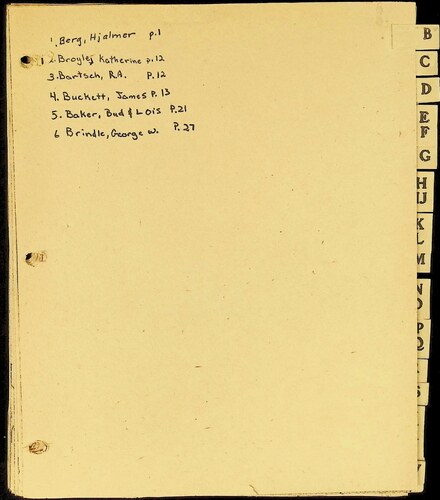 1. Berg, Hjalmer p.1
2. Brayley Katherine p.12
3. Bartsch, R.A. P.12
4. Buckett, James P. 13
5. Baker, Bud & Lois P.21
6 Brindle, George W. P.27
B
C
D
E
F
G
H
IJ
K
L
M
N
O
P
Q
S